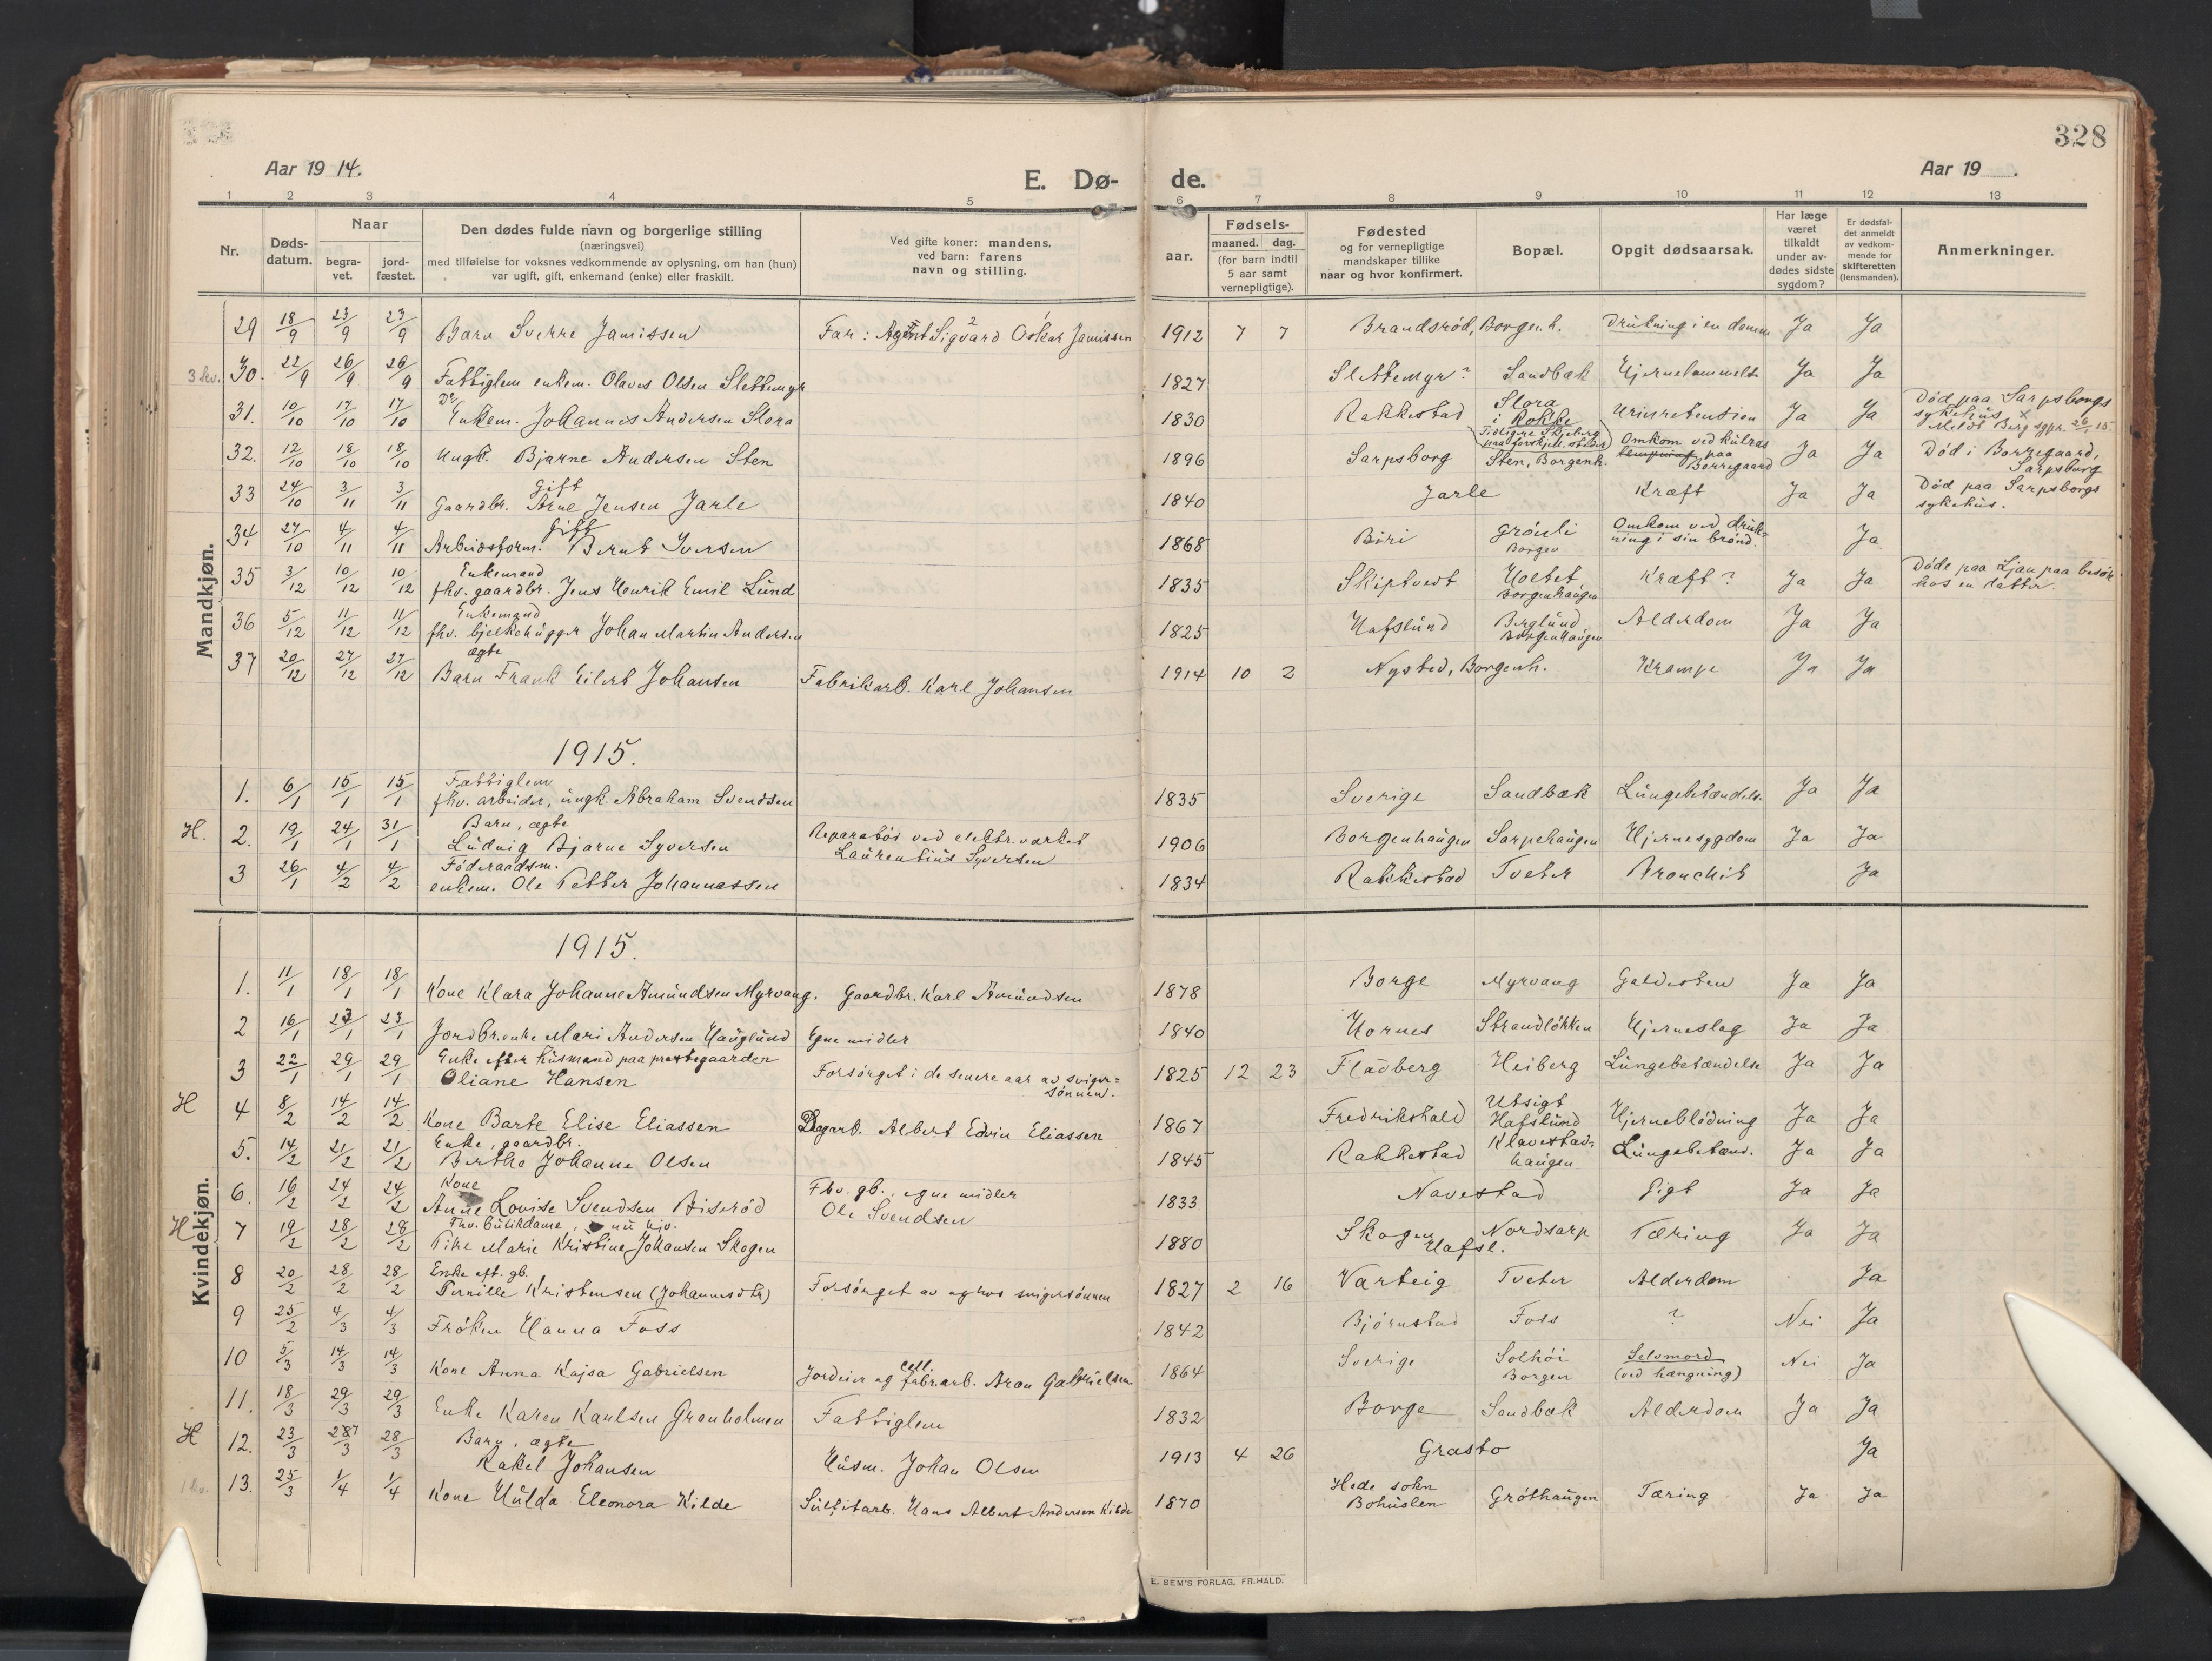 328
Aar 19 14.
E. Dø-
de.
Aar 19 .
1 2 3 4 5 6 7 8 9 10 11 12 13
Nr.
Døds-
datum.
Naar
begra-
vet.
jord-
fæstet.
Den dødes fulde navn og borgerlige stilling
(næringsvei)
med tilføielse for voksnes vedkommende av oplysning, om han (hun)
var ugift, gift, enkemand (enke) eller fraskilt.
Ved gifte koner: mandens,
ved barn: farens
navn og stilling.
aar.
Fødsels-
maaned. dag.
(for barn indtil
5 aar samt
vernepligtige).
Fødested
og for vernepligtige
mandskaper tillike
naar og hvor konfirmert.
Bopæl.
Opgit dødsaarsak.
Har læge
været
tilkaldt
under av-
dødes sidste
sygdom?
Er dødsfal-
det anmeldt
av vedkom-
mende for
skifteretten
(lensmanden).
Anmerkninger.
Mandkjøn.
29 18/9 23/9 23/9 Barn Sverre Jamissen Far: Agent Sigvard Oskar Jamissen 1912 7 7 Brandsrød, Borgenh. Drukning i en dam Ja Ja
30. 22/9 26/9 26/9 Fattiglem enkem. Olaves Olsen Slettemyr 1827 Slettemyr? Sandbæk Ja Ja
31. 10/10 17/10 17/10 Do Enkem. Johannes Andersen Slora 1830 Rakkestad Slora i Rokke Urinretention Ja Ja Død paa Sarpsborgs
sykehus x
32. 12/10 18/10 18/10 Ungk. Bjarne Andersen Sten 1896 Sarpsborg Sten, Borgenh. Omkom ved kulras
paa Borregaard Ja Ja Død i Borregaard,
Sarpsborg
33 24/10 3/11 3/11 Gift
Gaardbr. Arne Jensen Jarle 1840 Jarle Kræft Ja Ja Død paa Sarpsborgs
sykehus.
34. 27/10 4/11 4/11 Gift
Arbeidsform. Bernt Iversen 1868 Biri Grønli
Borgen Omkom ved druk-
ning i sin brønd. Ja
35 3/12 10/12 10/12 Enkemand
fhv. gaardbr. Jens Henrik Emil Lund 1835 Skiptvedt Holtet,
Borgenhaugen Kræft? Ja Ja Døde paa Ljan paa besøk
hos en datter.
36 5/12 11/12 11/12 Enkemand
fhv. bjelkehugger Johan Martin Andersen 1825 Hafslund Berglund
Borgenhaugen Alderdom Ja Ja
37 20/12 27/12 27/12 ægte
Barn Frank Eilert Johansen Fabrikarb. Karl Johansen 1914 10 2 Nysted, Borgenh. Krampe Ja Ja
1915.
1. 6/1 15/1 15/1 Fattiglem
fhv. arbeider, ungk. Abraham Svendsen 1835 Sverige Sandbæk Lungebetændelse Ja Ja
H. 2. 19/1 24/1 31/1 Barn, ægte
Ludvig Bjarne Syversen Reparatør ved elektr.verket
Laurentius Syversen 1906 Borgenhaugen Sarpehaugen Hjernesygdom Ja Ja
3 26/1 4/2 4/2 Föderaadsm.
enkem. Ole Petter Johannessen 1834 Rakkestad Tveter Bronchit Ja
Kvindekjøn.
1915.
1. 11/1 18/1 18/1 Kone Klara Johanne Amundsen Myrvang. Gaardbr. Karl Amundsen 1878 Borge Myrvang Galdesten Ja Ja
2 16/1 23/1 23/1 Jordbr.enke Mari Andersen Hauglund Egne midler 1840 Hornes Strandløkken Hjerneslag Ja Ja
3 22/1 29/1 29/1 Enke efter husmand paa prestegaarden
Oliane Hansen Forsørget i de senere aar av sviger=
sønnen. 1825 12 23 Fladberg Heiberg Lungebetændelse Ja Ja
H 4 8/2 14/2 14/2 Kone Barte Elise Eliassen Dagarb. Albert Edvin Eliassen 1867 Fredrikshald Utsigt
Hafslund Hjerneblødning Ja Ja
5. 14/2 21/2 21/2 Enke, gaardbr.
Bertha Johanne Olsen 1845 Rakkestad Klavestad=
haugen Lungebetænd. Ja Ja
6. 16/2 24/2 24/2 Kone
Anne Lovise Svendsen Biserød Fhv. gb., egne midler
Ole Svendsen 1833 Navestad Gigt Ja Ja
H 7 19/2 28/2 28/2 Fhv. butikdame, nu hjv.
Pike Marie Kristine Johansen Skogen 1880 Skogen
Hafsl. Nordsarp Tæring Ja Ja
8 20/2 28/2 28/2 Enke eft. gb.
Pernille Kristensen (Johannesdtr) Forsørget av og hos svigersønnen 1827 2 16 Varteig Tveter Alderdom Ja
9 25/2 4/3 4/3 Frøken Hanna Foss 1842 Bjørnstad Foss ? Nei Ja
10 5/3 14/3 14/3 Kone Anna Kajsa Gabrielsen Jordeier og cell. fabrarb. Aron Gabrielsen 1864 Sverige Solhøi
Borgen Selvmord
(ved hængning) Nei Ja
11. 18/3 29/3 29/3 Enke Karen Karlsen Granholmen Fattiglem 1832 Borge Sandbæk Alderdom Ja Ja
H 12. 23/3 28/3 28/3 Barn, ægte
Rakel Johansen Husm. Johan Olsen 1913 4 26 Grasto Ja
13. 25/3 1/4 1/4 Kone Hulda Eleonora Kilde Sulfitarb. Hans Albert Andersen Kilde 1870 Hede sokn
Bohuslen Grøthaugen Tæring Ja Ja
E. SEM'S FORLAG, FR.HALD.